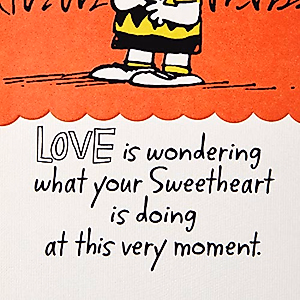 LOVE is wondering
what your Sweetheart
is doing
at this very moment.